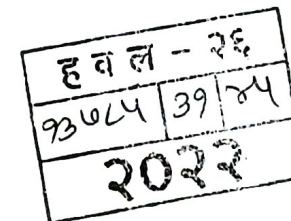 ह व ल - २६
१३७८५ ३१ २५
२०२२